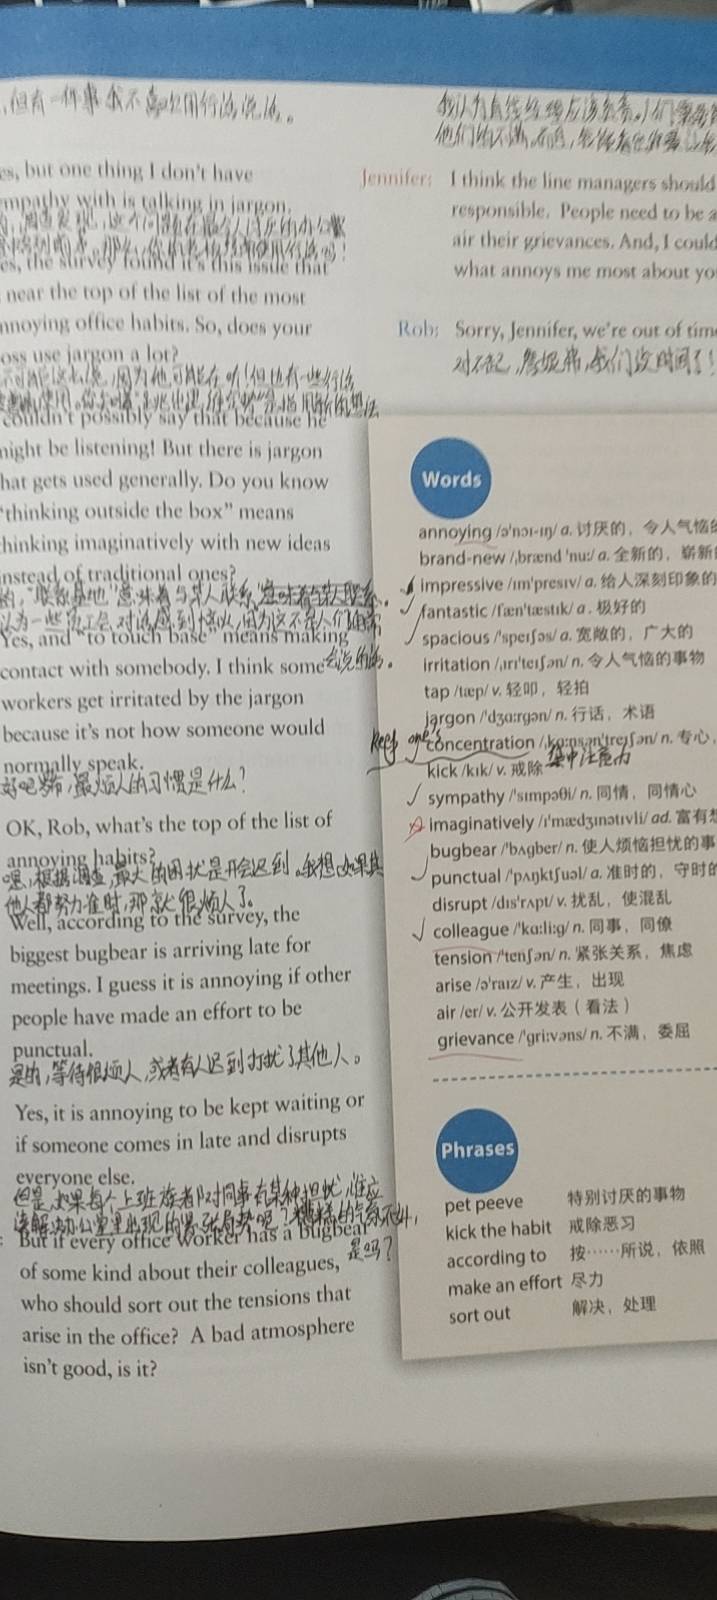 但有一件事我不喜欢用行话说话。
es, but one thing I don't have
mpathy with is talking in jargon.
es, the survey found it's this issue that
near the top of the list of the most
nnoying office habits. So, does your
oss use jargon a lot?
couldn't possibly say that because he
night be listening! But there is jargon
hat gets used generally. Do you know
"thinking outside the box" means
thinking imaginatively with new ideas
instead of traditional ones?
Yes, and "to touch base" means making
contact with somebody. I think some
workers get irritated by the jargon
because it's not how someone would
normally speak.
好吧罗布,最烦人的习惯是什么?
OK, Rob, what's the top of the list of
annoying habits?
嗯,根据调查,最大的困扰是开会迟到。我想如果其
他人都努力准时,那就很烦人了。
Well, according to the survey, the
biggest bugbear is arriving late for
meetings. I guess it is annoying if other
people have made an effort to be
punctual.
是的,等待很烦人,或者有人迟到打扰了其他人。
Yes, it is annoying to be kept waiting or
if someone comes in late and disrupts
everyone else.
但是,如果每个上班族都对同事有某种担忧,谁应
该解决办公室里出现的紧张局势呢?糟糕的气氛不好,
是吗?
But if every office worker has a bugbear
of some kind about their colleagues,
who should sort out the tensions that
arise in the office? A bad atmosphere
isn't good, is it?
我认为直线经理应该负责。人们需要
Jennifer: I think the line managers should
responsible. People need to be a
air their grievances. And, I could
what annoys me most about yo
Rob: Sorry, Jennifer, we're out of tim
对不起,詹妮弗,我们没时间了!
Words
annoying /ə'nɔɪ-ɪŋ/ a. 讨厌的，令人气恼
brand-new /ˌbrænd 'nu:/ a. 全新的，崭新
impressive /ɪm'presɪv/ a. 给人深刻印象的
fantastic /fæn'tæstɪk/ a. 极好的
spacious /'speɪʃəs/ a. 宽敞的，广大的
irritation /ˌɪrɪ'teɪʃən/ n. 令人气恼的事物
tap /tæp/ v. 轻叩，轻拍
jargon /'dʒɑ:rgən/ n. 行话，术语
keep one's concentration /ˌkɑ:nsən'treɪʃən/ n. 专心，
集中注意力
kick /kɪk/ v. 戒除
sympathy /'sɪmpəθi/ n. 同情，同情心
imaginatively /ɪ'mædʒɪnətɪvli/ ad. 富有想
bugbear /'bʌgber/ n. 使人烦恼担忧的事
punctual /'pʌŋktʃuəl/ a. 准时的，守时的
disrupt /dɪs'rʌpt/ v. 扰乱，使混乱
colleague /'kɑ:li:g/ n. 同事，同僚
tension /'tenʃən/ n. 紧张关系，焦虑
arise /ə'raɪz/ v. 产生，出现
air /er/ v. 公开发表（看法）
grievance /'gri:vəns/ n. 不满，委屈
Phrases
pet peeve 特别讨厌的事物
kick the habit 戒除恶习
according to 按……所说，依照
make an effort 尽力
sort out 解决，处理